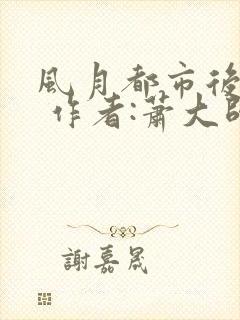 風月都市後
作者:蕭大
謝嘉晟